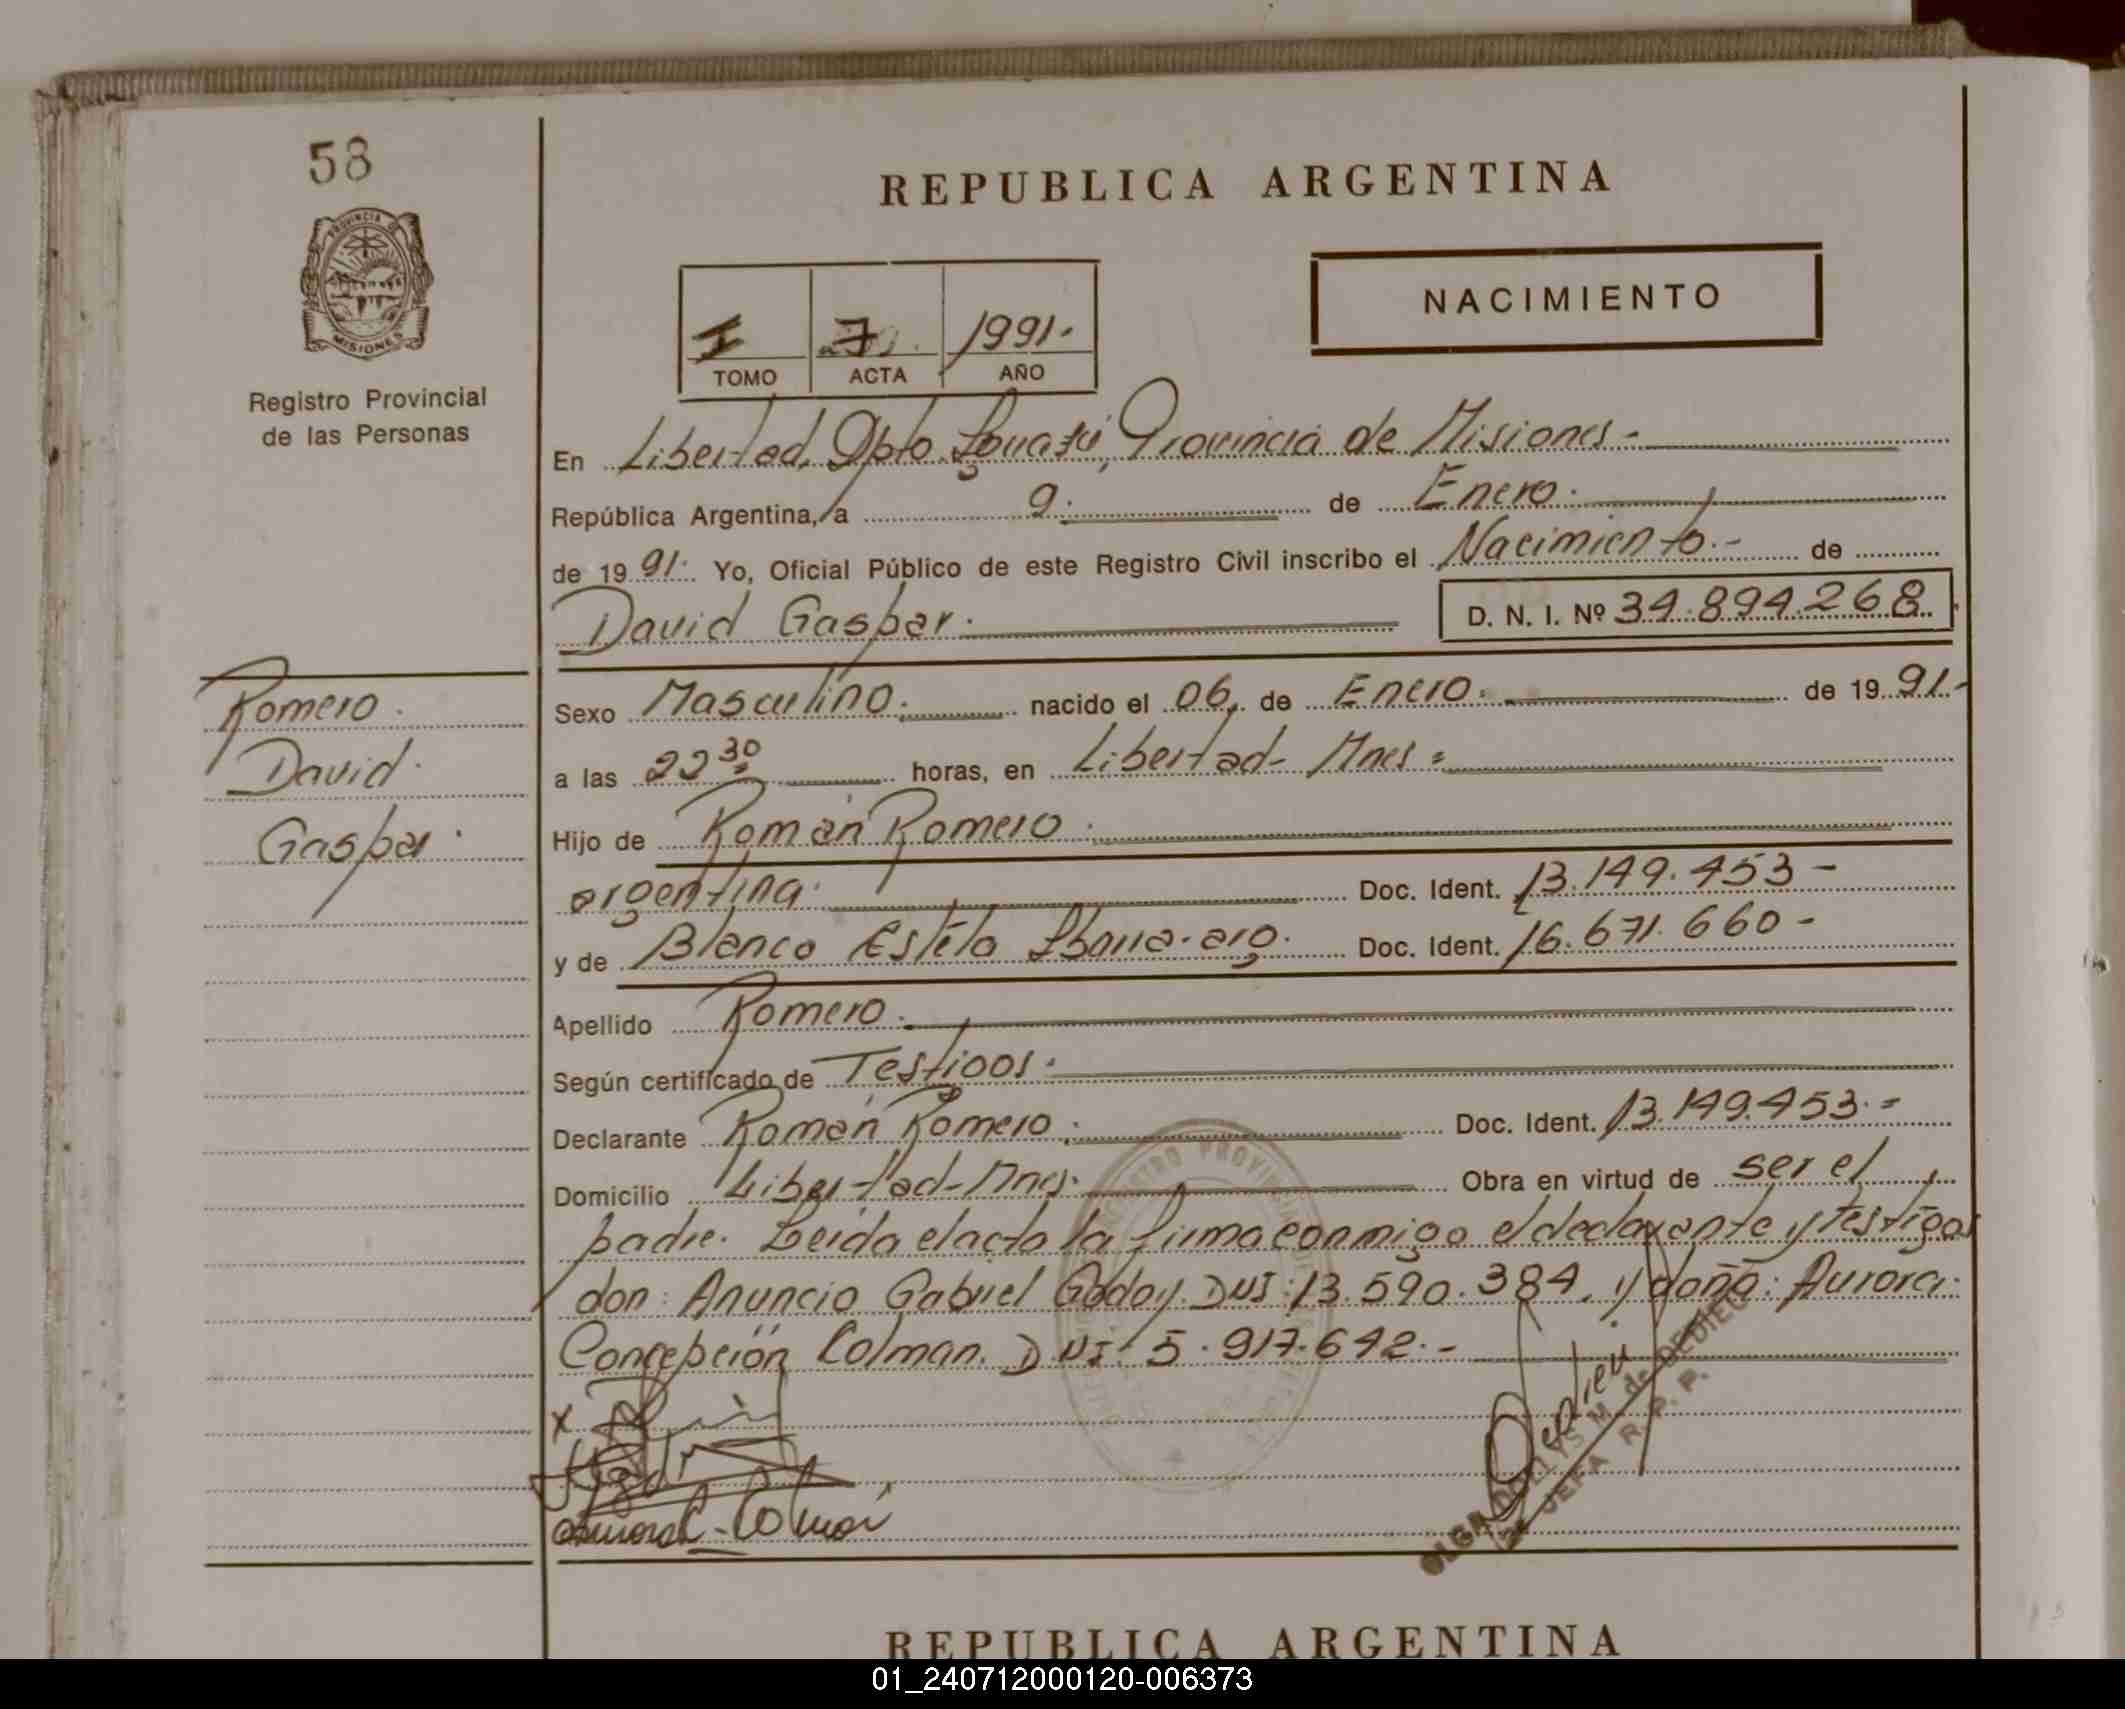 58
PROVINCIA DE
MISIONES
Registro Provincial
de las Personas
REPUBLICA ARGENTINA
NACIMIENTO
I 7 1991.
TOMO ACTA AÑO
En Libertad, Dpto. Iguazú, Provincia de Misiones-
República Argentina, a 9. de Enero.
de 1991. Yo, Oficial Público de este Registro Civil inscribo el Nacimiento.- de
David Gaspar. D. N. I. Nº 34.894.268.
Romero.
David.
Gaspar.
Sexo Masculino. nacido el 06, de Enero. de 1991.-
a las 22 30 horas, en Libertad- Mnes=
Hijo de Román Romero.
argentina. Doc. Ident. 13.149.453-
y de Blanca Estela Doc. Ident. 16.671.660-
Apellido Romero.
Según certificado de Testigos.
Declarante Román Romero. Doc. Ident. 13.149.453.=
Domicilio Libertad-Mnes. Obra en virtud de ser el
padre. Leída el acta la firma conmigo el declarante y testigos
don: Anuncio Gabriel Godoy. DNI: 13.590.384, y doña: Aurora
Concepción Colman. DNI: 5.917.642.-
x
Aurora C. Colman
Dedieu
OLGA M. de DEDIEU
JEFA R. P. P.
REPUBLICA ARGENTINA
01_240712000120-006373